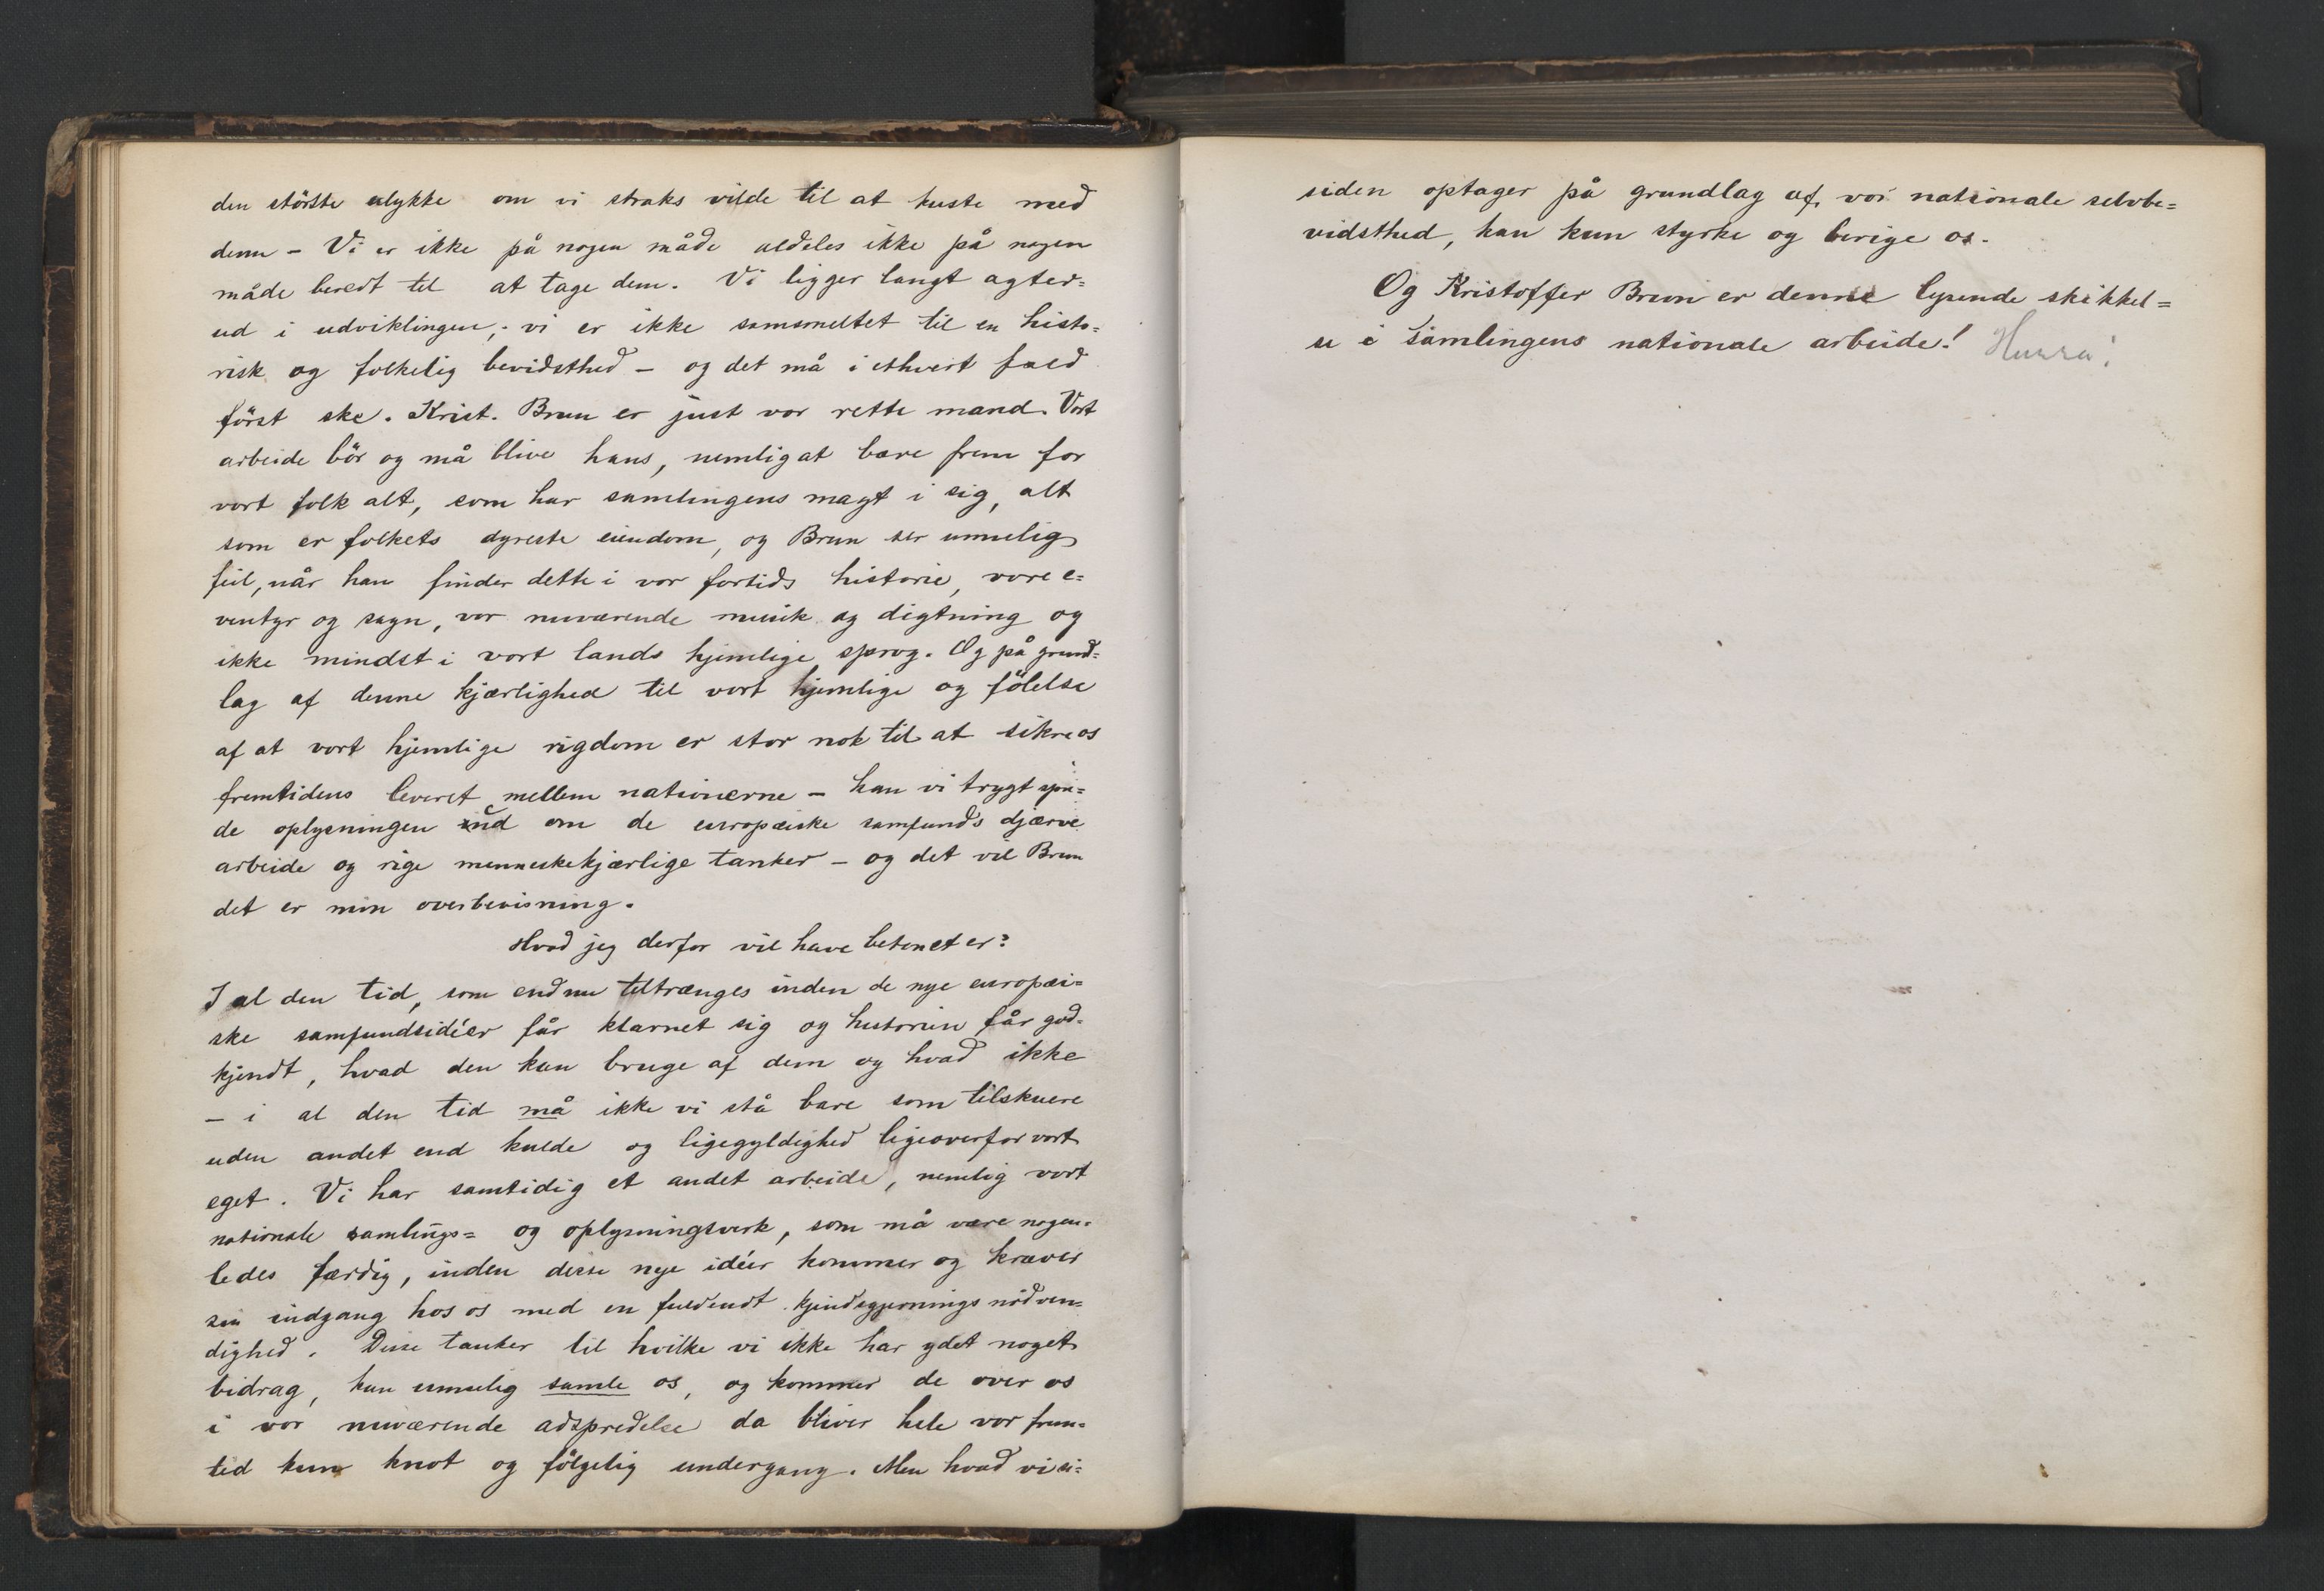 den störste ulykke om vi straks vilde til at huste med
dem - Vi er ikke på nogen måde aldeles ikke på nogen
måde beredt til at tage dem. Vi ligger langt agter=
ud i udviklingen; vi er ikke samsmeltet til en histo=
risk og folkelig bevidsthed - og det må i ethvert fald
först ske. Krist. Brun er just vor rette mand. Vort
arbeide bör og må blive hans, nemlig at bære frem for
vort folk alt, som har samlingens magt i sig, alt
som er folkets dyreste eiendom, og Brun ser umulig
feil, når han finder dette i vor fortids historie, vore e=
ventyr og sagn, vor nuværende musik og digtning og
ikke mindst i vort lands hjemlige sprog. Og på grund=
lag af denne kjærlighed til vort hjemlige og fölelse
af at vort hjemlige rigdom er stor nok til at sikre os
fremtidens leveret mellem nationerne - kan vi trygt spre=
de oplysningen ind om de europæiske samfunds djærve
arbeide og rige menneskekjærlige tanker - og det vil Brun
det er min overbevisning.
Hvad jeg derfor vil have betonet er:
I al den tid, som endnu tiltrænges inden de nye europæi=
ske samfundsidéer får klarnet sig og historien får god=
kjendt, hvad den kan bruge af dem og hvad ikke
- i al den tid må ikke vi stå bare som tilskuere
uden andet end kulde og ligegyldighed ligeoverfor vort
eget. Vi har samtidig et andet arbeide, nemlig vort
nationale samlings= og oplysningsverk, som må være nogen=
ledes færdig, inden disse nye idéer kommer og kræver
sin indgang hos os med en fuldendt kjendsgjernings nödven=
dighed. Disse tanker til hvilke vi ikke har ydet noget
bidrag, kan umulig samle os, og kommer de over os
i vor nuværende adspredelse da bliver hele vor frem=
tid kun knot og fölgelig undergang. Men hvad vi si=
siden optager på grundlag af vor nationale selvbe=
vidsthed, kan kun styrke og berige os.
Og Kristoffer Brun er denne lysende skikkel=
se i samlingens nationale arbeide! Hurra!